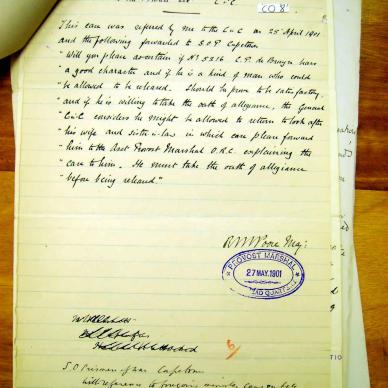 C in C
CO 8
This case was referred by me to the C in C on 25 April 1901
and the following forwarded to S.O.P. Capetown
"Will you please ascertain if No 5316 C.P. de Bruyn bears
"a good character and if he is a kind of man who could
"be allowed to be released. Should he prove to be satisfactory,
"and if he is willing to take the oath of allegiance, the General
"C in C considers he might be allowed to return to look after
"his wife and sister in law in which case please forward
"him to the Asst Provost Marshal O.R.C. explaining the
"case to him. He must take the oath of allegiance
"before being released."
R M Poore Maj:
PROVOST MARSHAL
27 MAY. 1901
HEAD QUARTERS
S.O. Prisoners of War Capetown
With reference to foregoing minute, can